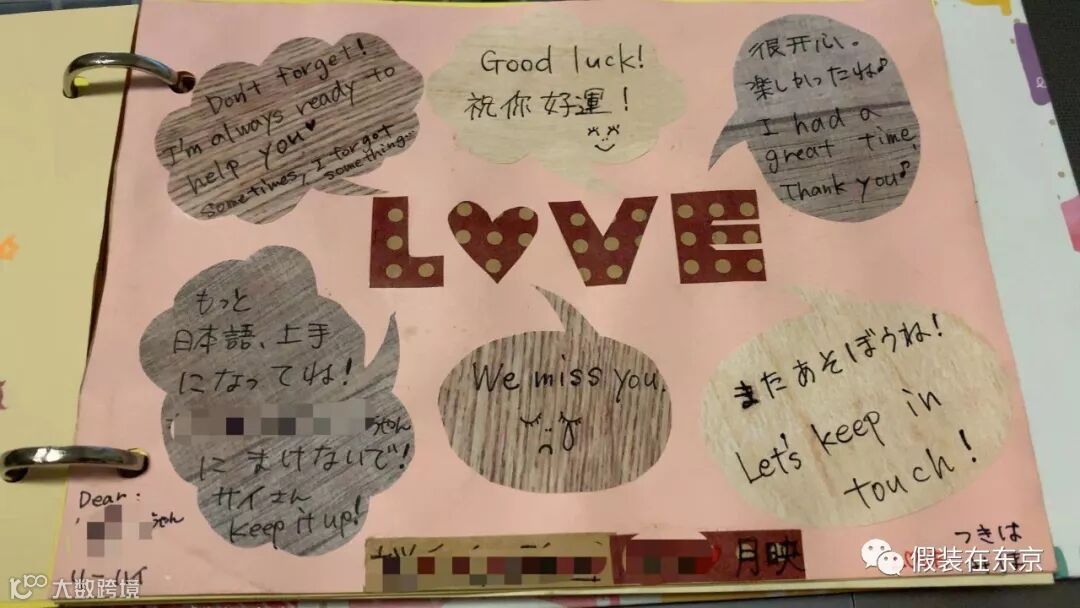 Don't forget!
I'm always ready to
help you♥
sometimes, I forgot
something...
Good luck!
祝你好運!
很开心。
楽しかったね♪
I had a
great time.
Thank you♪
LOVE
もっと
日本語、上手
になってね!
ちゃん
にまけないで!
サイさん
keep it up!
We miss you.
またあそぼうね!
Let's keep in
touch!
Dear:
ちゃん
月映
つきは
假装在东京
大数跨境